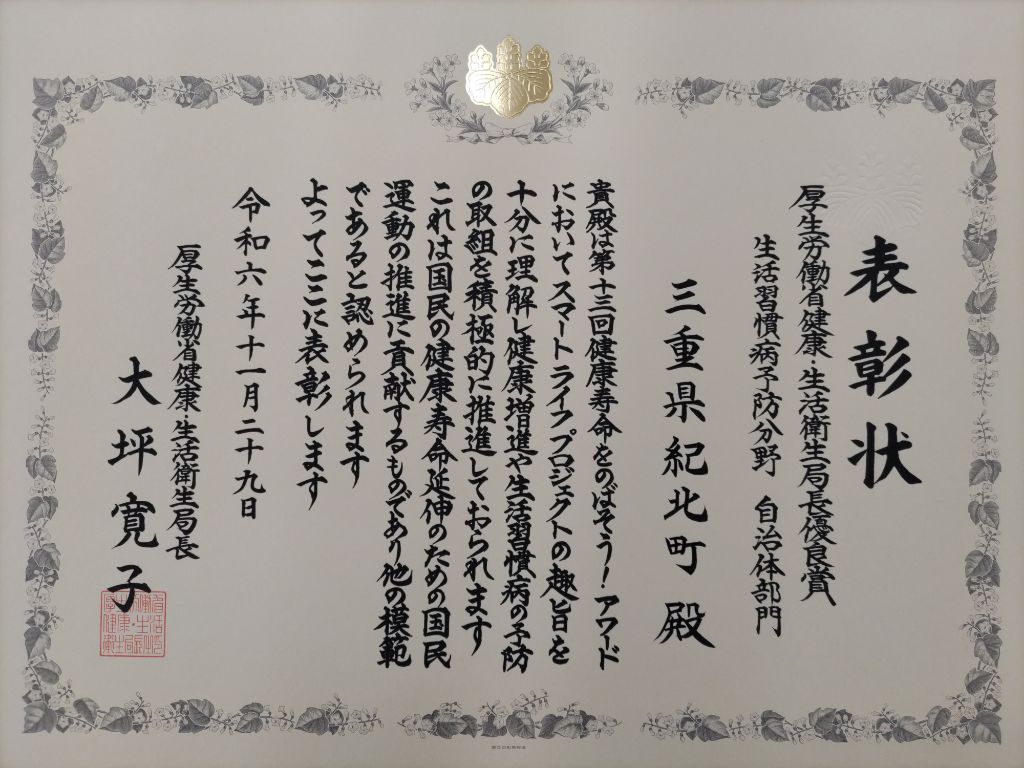 表彰状
厚生労働省健康・生活衛生局長優良賞
生活習慣病予防分野 自治体部門
三重県紀北町 殿
貴殿は第十三回健康寿命をのばそう！アワード
においてスマートライフプロジェクトの趣旨を
十分に理解し健康増進や生活習慣病の予防
の取組を積極的に推進しておられます
これは国民の健康寿命延伸のための国民
運動の推進に貢献するものであり他の模範
であると認められます
よってここに表彰します
令和六年十一月二十九日
厚生労働省健康 生活衛生局長
大坪寛子